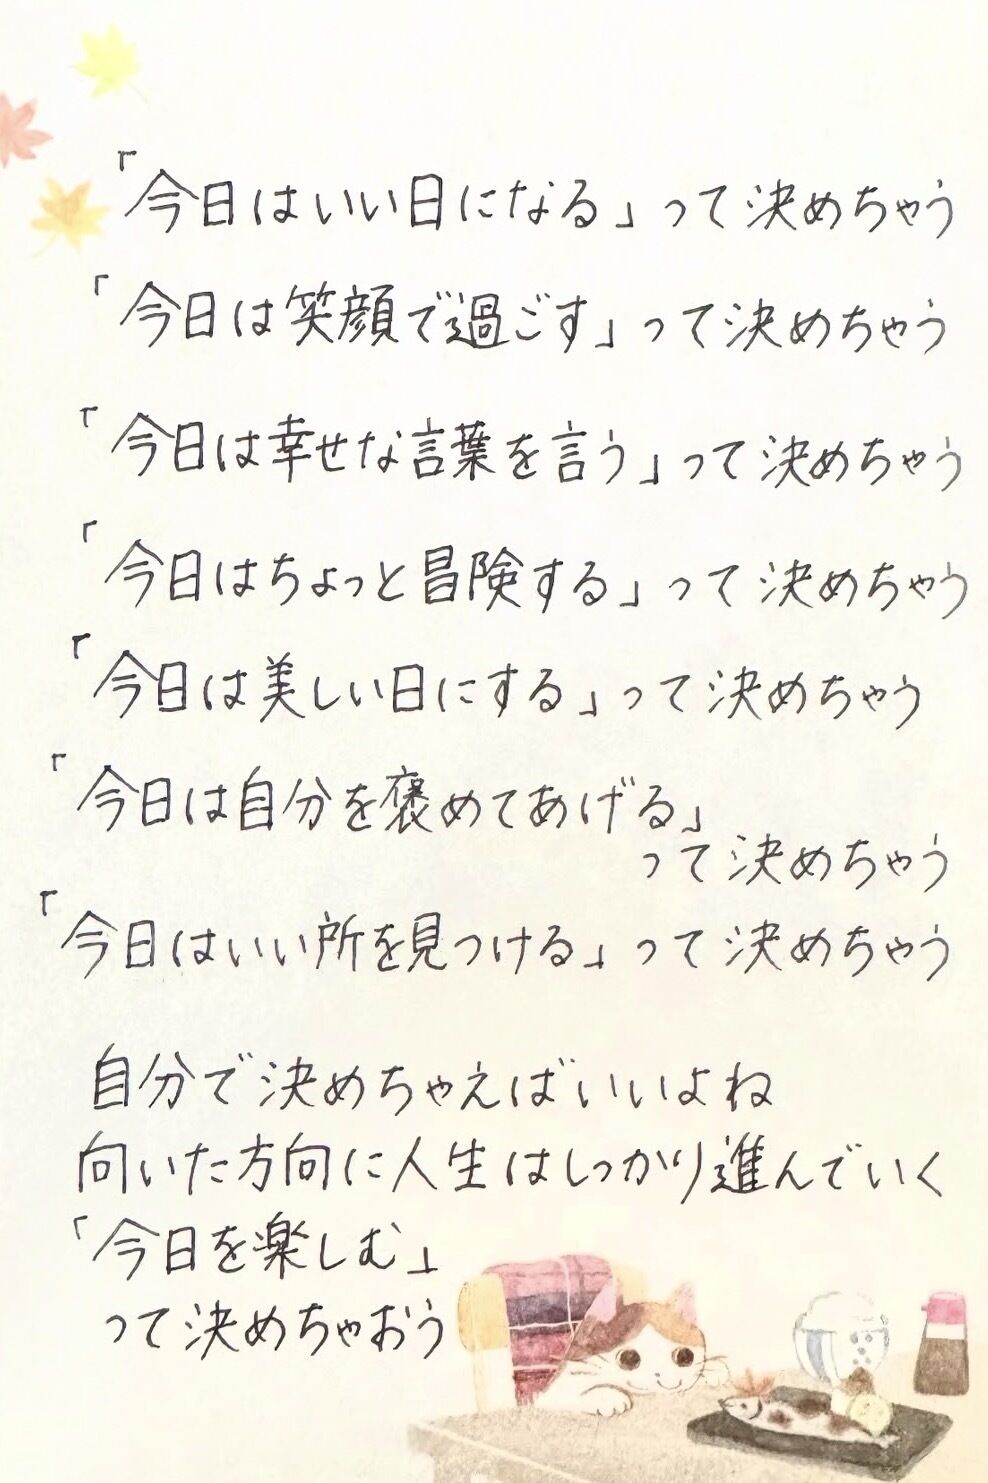 「今日はいい日になる」って決めちゃう
「今日は笑顔で過ごす」って決めちゃう
「今日は幸せな言葉を言う」って決めちゃう
「今日はちょっと冒険する」って決めちゃう
「今日は美しい日にする」って決めちゃう
「今日は自分を褒めてあげる」
って決めちゃう
「今日はいい所を見つける」って決めちゃう
自分で決めちゃえばいいよね
向いた方向に人生はしっかり進んでいく
「今日を楽しむ」
って決めちゃおう